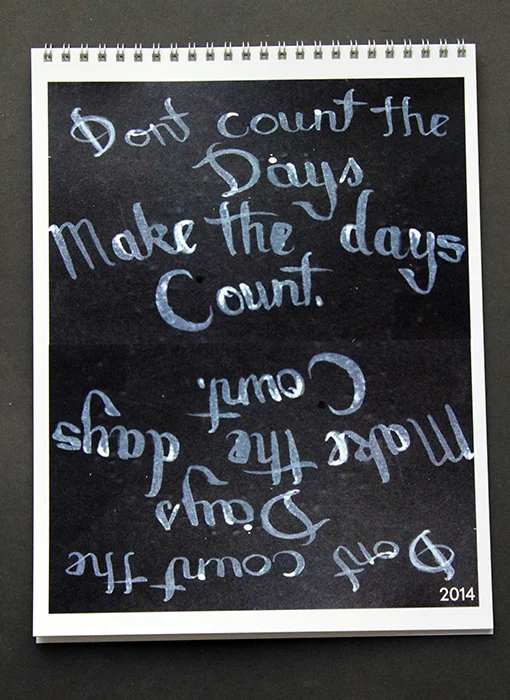 Dont count the
Days
Make the days
Count.
Count.
Make the days
Days
Dont count the
2014